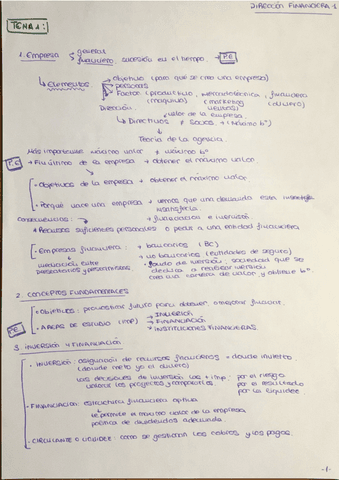 DIRECCIÓN FINANCIERA - 1
TEMA 1:
1. Empresa general
financiero sucesión en el tiempo. → PE
↳ Elementos → objetivo (para qué se crea una empresa)
→ personas
→ Factor (productivo, mercadotécnica, financiero
(maquina) (marketing (dinero)
Dirección. ventas)
↳ valor de la empresa
↳ Directivos ≠ Socios → (máximo bº)
↳ Teoría de la agencia
Más importante máximo valor ≠ máximo bº
PE • Fin último de la empresa → obtener el máximo valor
• objetivos de la empresa → obtener el máximo valor
• Porqué nace una empresa → vemos que una demanda esta
insatisfecha
consecuencias: → financiación e inversión
• Recursos suficientes personales o pedir a una entidad financiera
• Empresas financieras: → bancarios (BC)
↳ → no bancarios (entidades de seguro)
intermediación entre → fondo de inversión, sociedad que se
prestatarios y prestamistas dedica a realizar inversión
crea una cartera de valor y obtiene bº.
2. CONCEPTOS FUNDAMENTALES
• Objetivos: pronosticar futuro para obtener o mejorar
PE • AREAS DE ESTUDIO (POP) → INVERSIÓN
→ FINANCIACIÓN
→ INSTITUCIONES FINANCIERAS
3. INVERSIÓN Y FINANCIACIÓN
• INVERSIÓN: asignación de recursos financieros → donde invierto
(donde meto yo el dinero)
las decisiones de inversión las + imp.: por el riesgo
valorar los proyectos y compararlos por el resultado
por la liquidez
• FINANCIACIÓN: estructura financiera optima
te permite el máximo valor de la empresa
política de dividendos adecuada.
• CIRCULANTE O LIQUIDEZ: como se gestionan los cobros y los pagos.
- 1 -